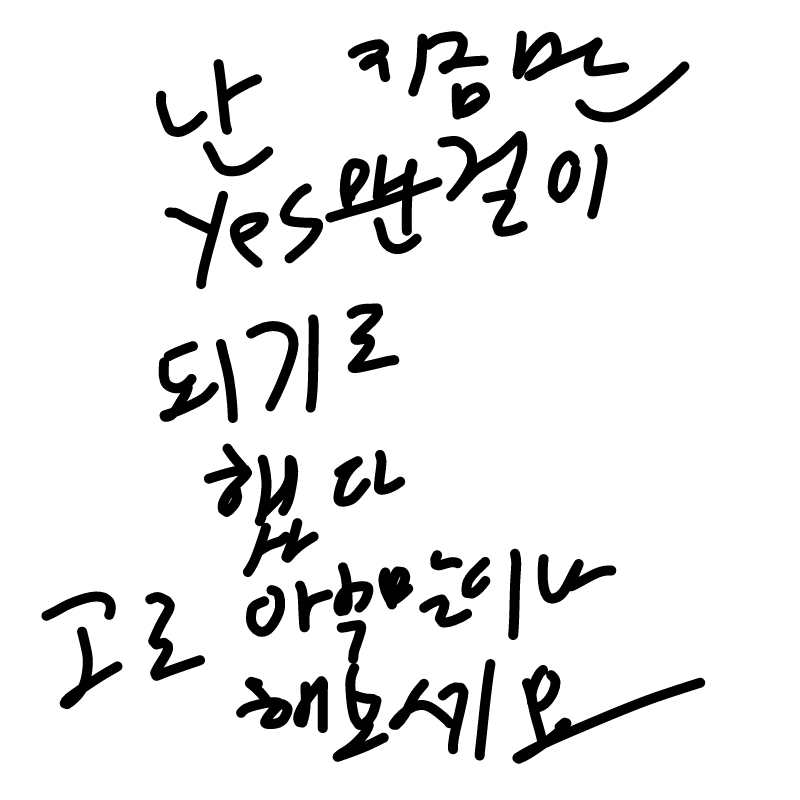 난 지금만
yes맨걸이
되기로
했다
고로 아무말이나
해보세요